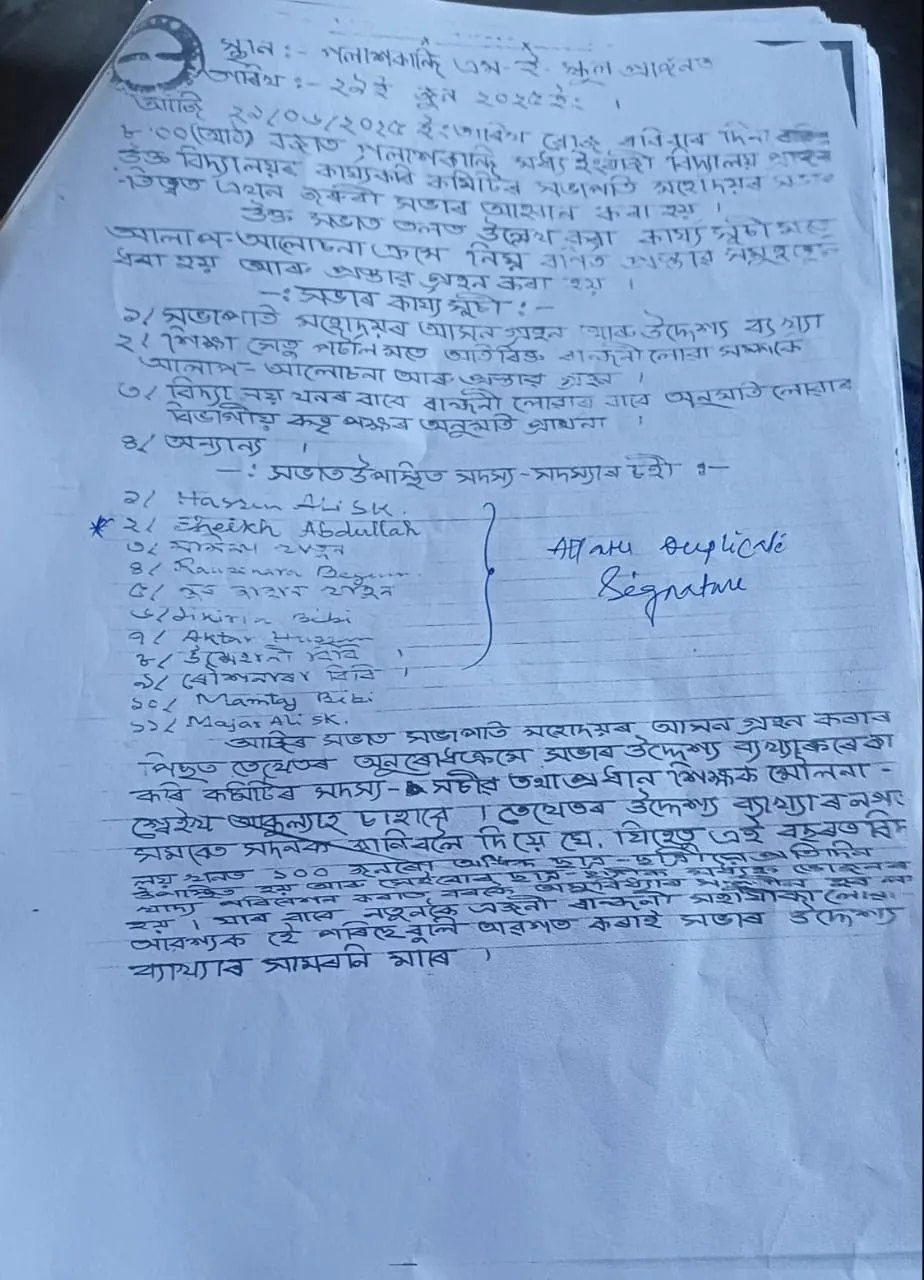 স্থান :- পলাশকান্দি এম-ই- স্কুল প্ৰাঙ্গনত
তাৰিখ :- ২৯ই জুন ২০২৫ ইং ।
আজি ২৯/০৬/২০২৫ ইং তাৰিখ ৰোজ ৰবিবাৰ দিনা
৮.০০(আঠ) বজাত পলাশকান্দি মধ্য ইংৰাজী বিদ্যালয়
উক্ত বিদ্যালয়ৰ কাৰ্য্যকৰি কমিটিৰ সভাপতি মহোদয়ৰ
-তিত্বত এখন জৰুৰী সভাৰ আহ্বান কৰা হয় ।
উক্ত সভাত তলত উল্লেখ কৰা কাৰ্য্য সূচী মতে
আলাপ-আলোচনা ক্ৰমে নিম্ন বৰ্নিত প্ৰস্তাৱ সমূহ
ধৰা হয় আৰু প্ৰস্তাৱ গ্ৰহন কৰা হয় ।
-: সভাৰ কাৰ্য্য সূচী :-
১/ সভাপতি মহোদয়ৰ আসন গ্ৰহন আৰু উদ্দেশ্য ব্যখ্যা
২/ শিক্ষা সেতু পৰ্টাল মতে অতিৰিক্ত ৰান্ধনী লোৱা সম্পৰ্কে
আলাপ- আলোচনা আৰু প্ৰস্তাৱ গ্ৰহন ।
৩/ বিদ্যালয় খনৰ বাবে ৰান্ধনী লোৱাৰ বাবে অনুমতি লোৱাৰ
বিভাগীয় কতৃপক্ষৰ অনুমতি প্ৰাৰ্থনা ।
৪/ অন্যান্য ।
-: সভাত উপস্থিত সদস্য-সদস্যাৰ চহী :-
১/ Hassen Ali SK.
* ২/ Sheikh Abdullah
৩/ খাতুন
৪/ Rausinara Begum
৫/ নুৰ খাতুন
৬/ Bibi
৭/ Aktar Hussen
৮/ বিবি ।
৯/ ৰৌশনাৰা বিবি ।
১০/ Mamtaj Bibi
১১/ Majar Ali SK.
All are Duplicate
Signature
আজিৰ সভাত সভাপতি মহোদয়ৰ আসন গ্ৰহন কৰাৰ
পিছত তেখেতৰ অনুৰোধক্ৰমে সভাৰ উদ্দেশ্য ব্যাখ্যা কৰে কা
কৰি কমিটিৰ সদস্য- সচীৱ তথা প্ৰধান শিক্ষক মৌলনা -
শ্বেইখ আব্দুল্লাহ চাহাবে । তেখেতৰ উদ্দেশ্য ব্যাখ্যাৰ
সমবেত সদনক জানিবলৈ দিয়ে যে, যিহেতু এই বছৰত বিদ্যা
লয় খনত ১০০ জনৰো অধিক ছাত্ৰ-ছাত্ৰীয়ে প্ৰতিদিন
উপস্থিত হয় আৰু সেইবোৰ ছাত্ৰ-
খাদ্য পৰিবেশন কৰাত বৰকৈ অসুবিধাৰ
হয় । যাৰ বাবে নতুনকৈ এজনী ৰান্ধনী
আৱশ্যক হৈ পৰিছে বুলি অৱগত কৰাই সভাৰ উদ্দেশ্য
ব্যাখ্যাৰ সামৰনি মাৰে ।